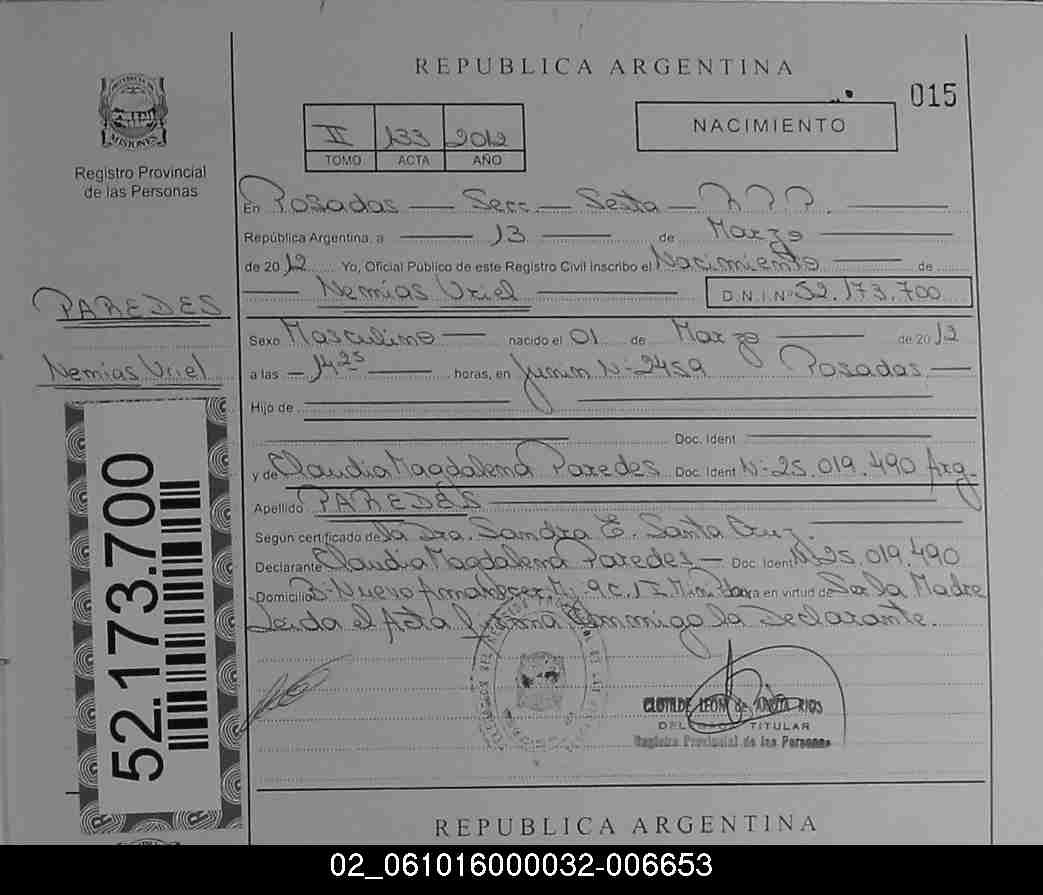 REPUBLICA ARGENTINA
015
MISIONES
Registro Provincial
de las Personas
II 133 2012
TOMO ACTA AÑO
NACIMIENTO
En Posadas — Secc. — Sexta —
República Argentina, a — 13 — de Marzo
de 2012 Yo, Oficial Público de este Registro Civil inscribo el Nacimiento — de
— Nemias Uriel — D.N.I Nº 52.173.700
PAREDES
Nemias Uriel
Sexo Masculino — nacido el 01 de Marzo — de 2012
a las — 14 25 — horas, en Junin Nº 2459 Posadas —
Hijo de
Doc. Ident
y de Claudia Magdalena Paredes Doc. Ident Nº 25.019.490 Arg.
Apellido PAREDES
Segun certificado de la Dra. Sandra E. Santa Cruz.
Declarante Claudia Magdalena Paredes — Doc. Ident Nº 25.019.490
Domicilio Bº Nuevo Amanecer en virtud de Ser la Madre
Leida el Acta Firma Conmigo la Declarante.
CLOTILDE LEON de RIOS
DELEGADO TITULAR
Registro Provincial de las Personas
52.173.700
REPUBLICA ARGENTINA
02_061016000032-006653